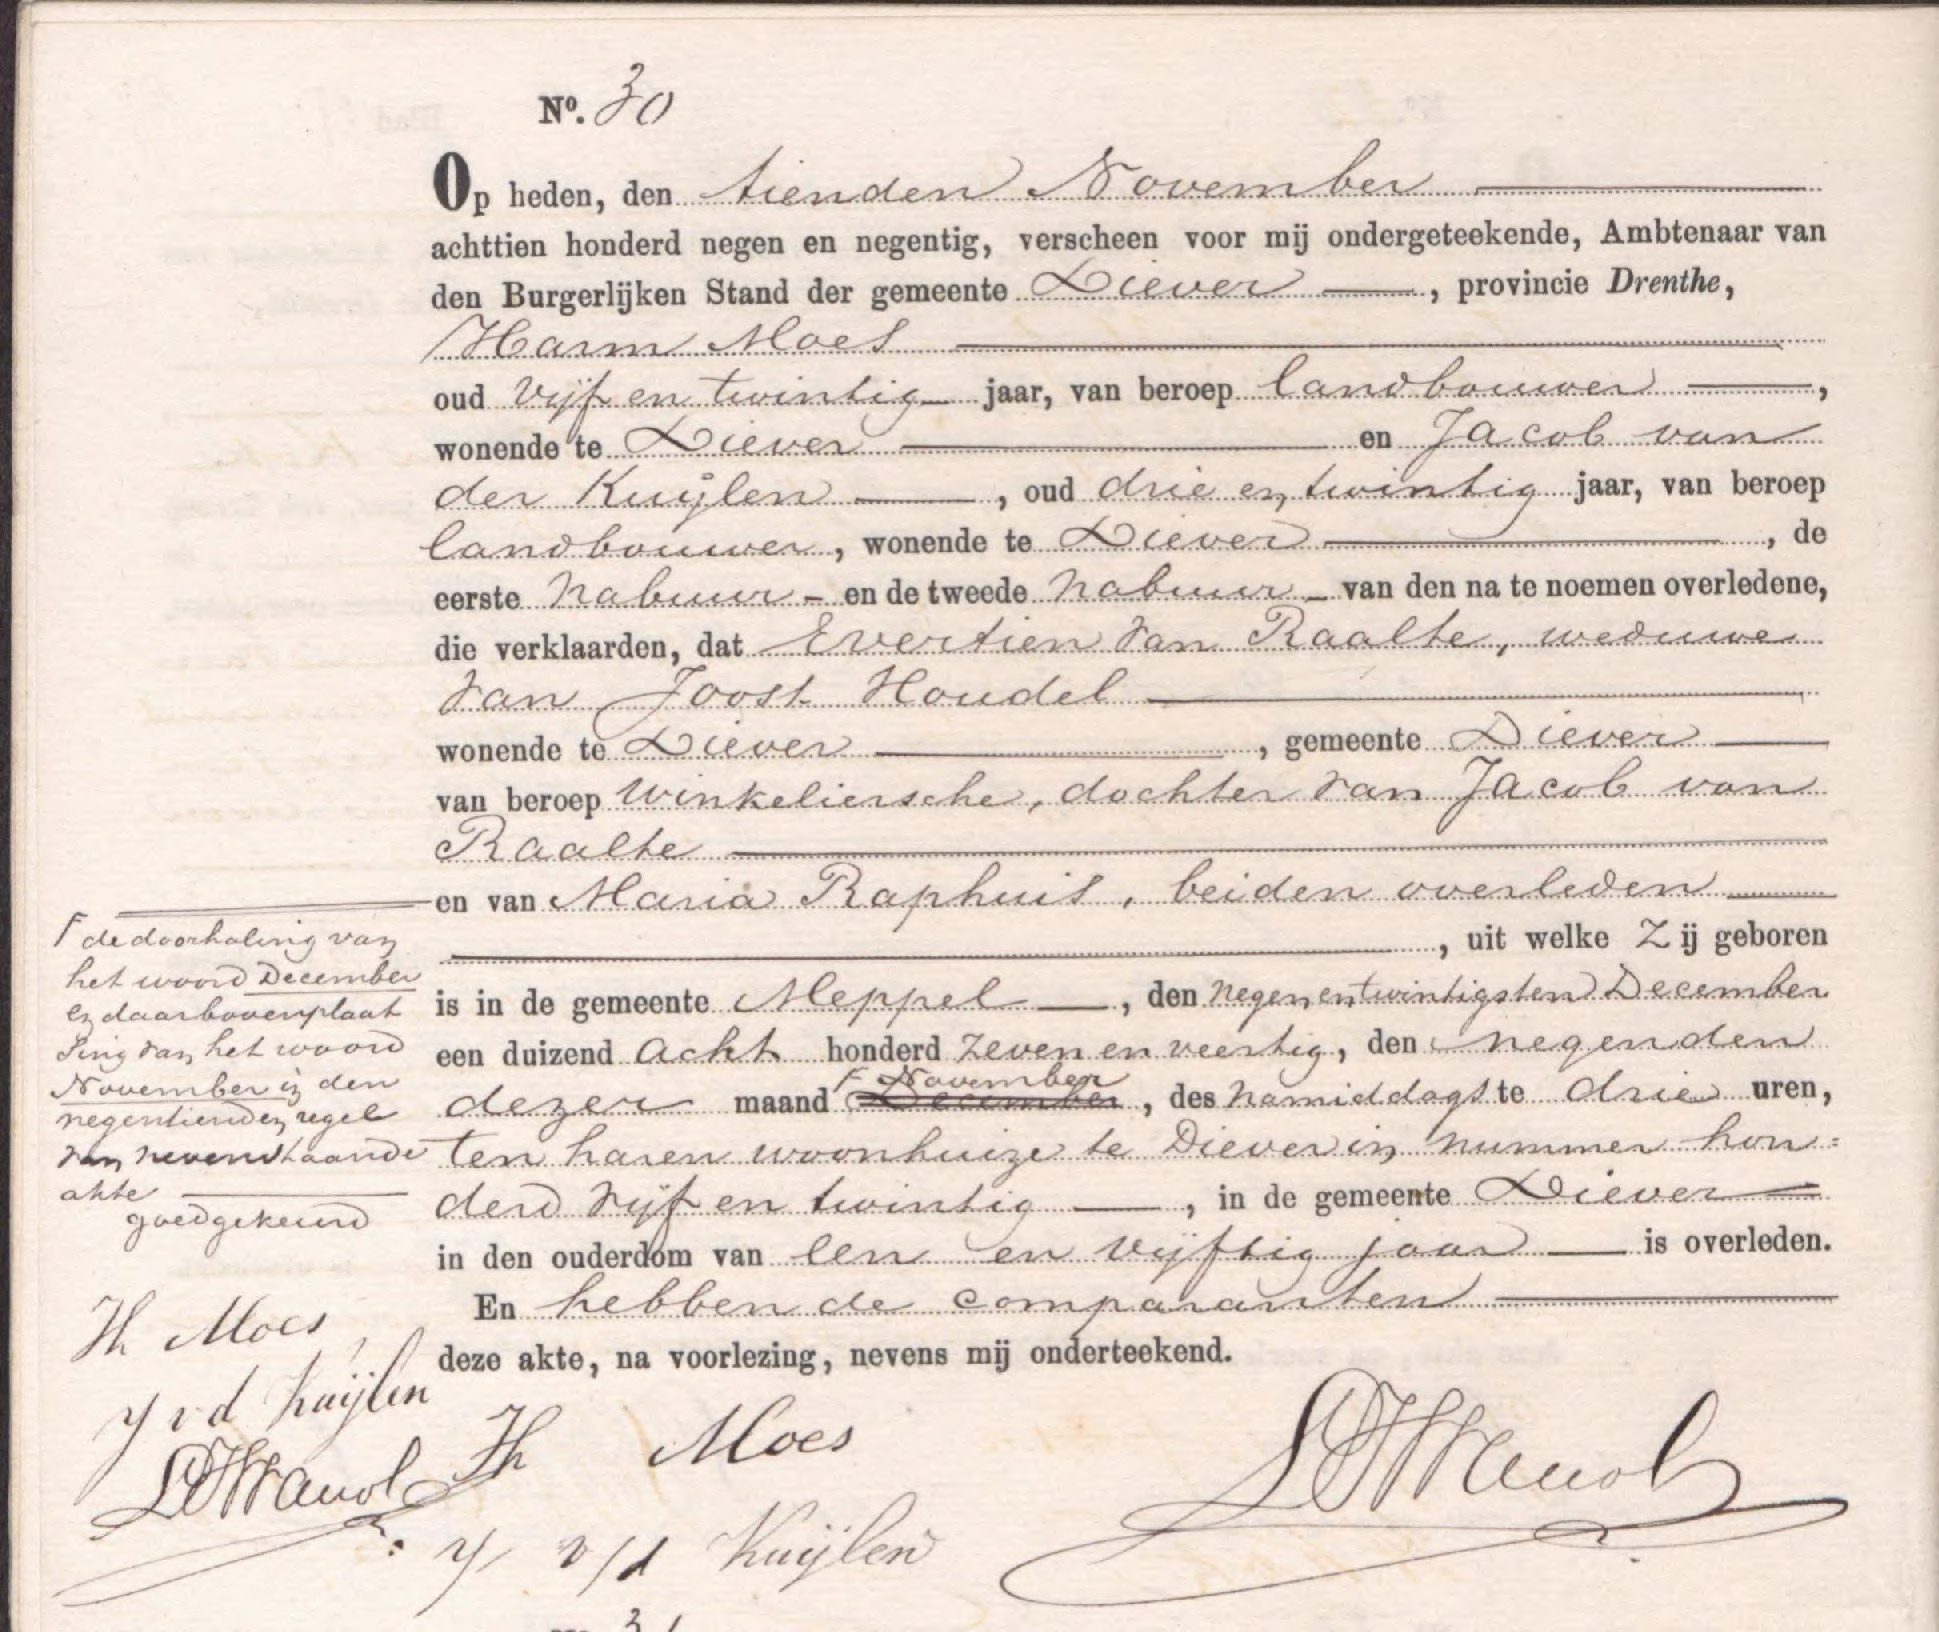 Nº. 30
Op heden, den tienden November
achttien honderd negen en negentig, verscheen voor mij ondergeteekende, Ambtenaar van
den Burgerlijken Stand der gemeente Diever, provincie Drenthe,
Harm Moes
oud vijf en twintig jaar, van beroep landbouwer,
wonende te Diever en Jacob van
der Kuijlen, oud drie en twintig jaar, van beroep
landbouwer, wonende te Diever, de
eerste nabuur - en de tweede nabuur - van den na te noemen overledene,
die verklaarden, dat Evertien van Raalte, weduwe
van Joost Houdel
wonende te Diever, gemeente Diever
van beroep winkeliersche, dochter van Jacob van
Raalte
en van Maria Raphuis, beiden overleden
, uit welke Zij geboren
is in de gemeente Meppel, den negenentwintigsten December
een duizend acht honderd zeven en veertig, den negenden
dezer maand November December, des namiddags te drie uren,
ten haren woonhuize te Diever in nummer hon=
derd vijf en twintig, in de gemeente Diever
in den ouderdom van een en vijftig jaar is overleden.
En hebben de comparanten
deze akte, na voorlezing, nevens mij onderteekend.
de doorhaling van
het woord December
en daarbovenplaat
sing van het woord
November in den
negentienden regel
van nevenstaande
akte
goedgekeurd
H Moes
J v d Kuijlen
H Moes
J v/d Kuijlen
31